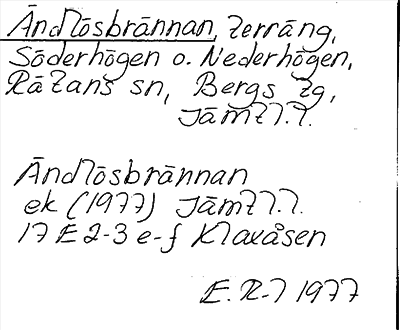 Ändlösbrännan, terräng,
Söderhögen o. Nederhögen,
Rätans sn, Bergs tg,
Jämtl.l.
Ändlösbrännan
ek (1977) Jämtl.l.
17 E 2-3 e-f Klaxåsen
E.R-l 1977